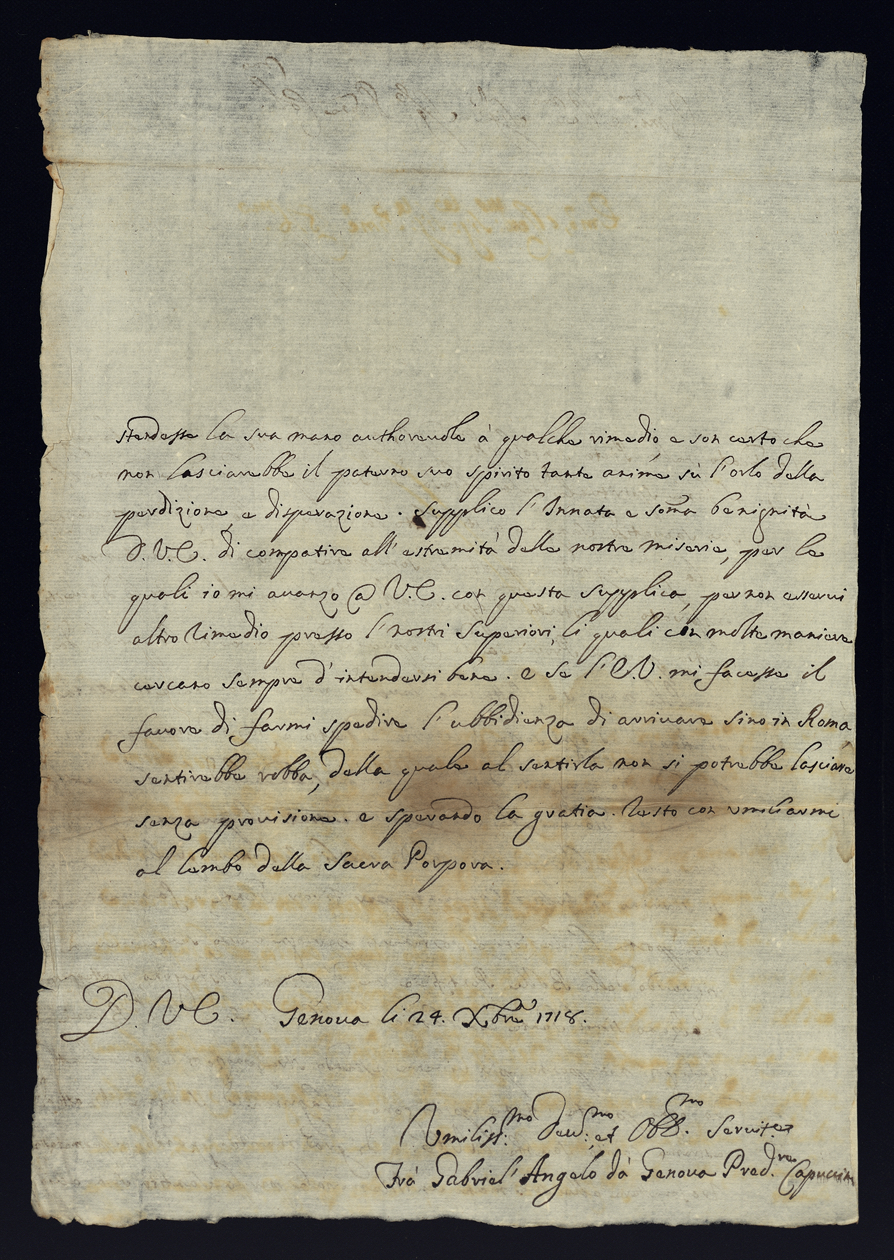 stendesse la sua mano authoreuole à qualche rimedio, e son certo che
non lasciarebbe il paterno suo spirito tante anime sù l'orlo della
perdizione, e disperazione. Supplico l'Innata e som̃a benignità
D. V.E. di compatire all'estremità delle nostre miserie, per le
quali io mi auanzo @ V.E. con questa supplica, per non esserui
altro rimedio presso l'nostri Superiori, li quali con molte maniere
cercano sempre d'intendersi bene. e se l'E.V. mi facesse il
fauore di farmi spedire l'ubbidienza di arriuare sino in Roma,
sentirebbe robba, della quale al sentirla non si potrebbe lasciare
senza prouisione. e sperando la gratia. Resto con umiliarmi
al lembo della Sacra Porpora.
D. V.E. Genoua li 24. Xbre 1718.
Umiliss:mo Deu:mo et Obb.mo Seruite
Frà Gabriel' Angelo dà Genoua Pred.re Capuccin